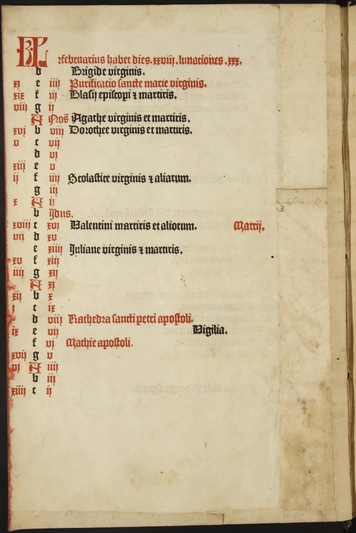 KL Februarius habet dies.xxviij.lunationes.xxx.
d Brigide virginis.
xi e iiij Purificatio sancte marie virginis.
xix f iij Blasij episcopi ⁊ martiris.
viij g ij
A Noñ Agathe virginis et martiris.
xvj b viij Dorothee virginis et martiris.
v c vij
d vj
xiij e v
ij f iiij Scolastice virginis ⁊ aliarum.
g iij
x A ij
b Jdus.
xviij c xvj Valentini martiris et aliorum. Martij.
vij d xv
e xiiij Juliane virginis ⁊ martiris.
xv f xiij
iiij g xij
A xj
xij b x
j c ix
d viij Kathedra sancti petri apostoli.
ix e vij Vigilia.
f vj Mathie apostoli.
xvij g v
vj A iiij
b iij
xiiij c ij